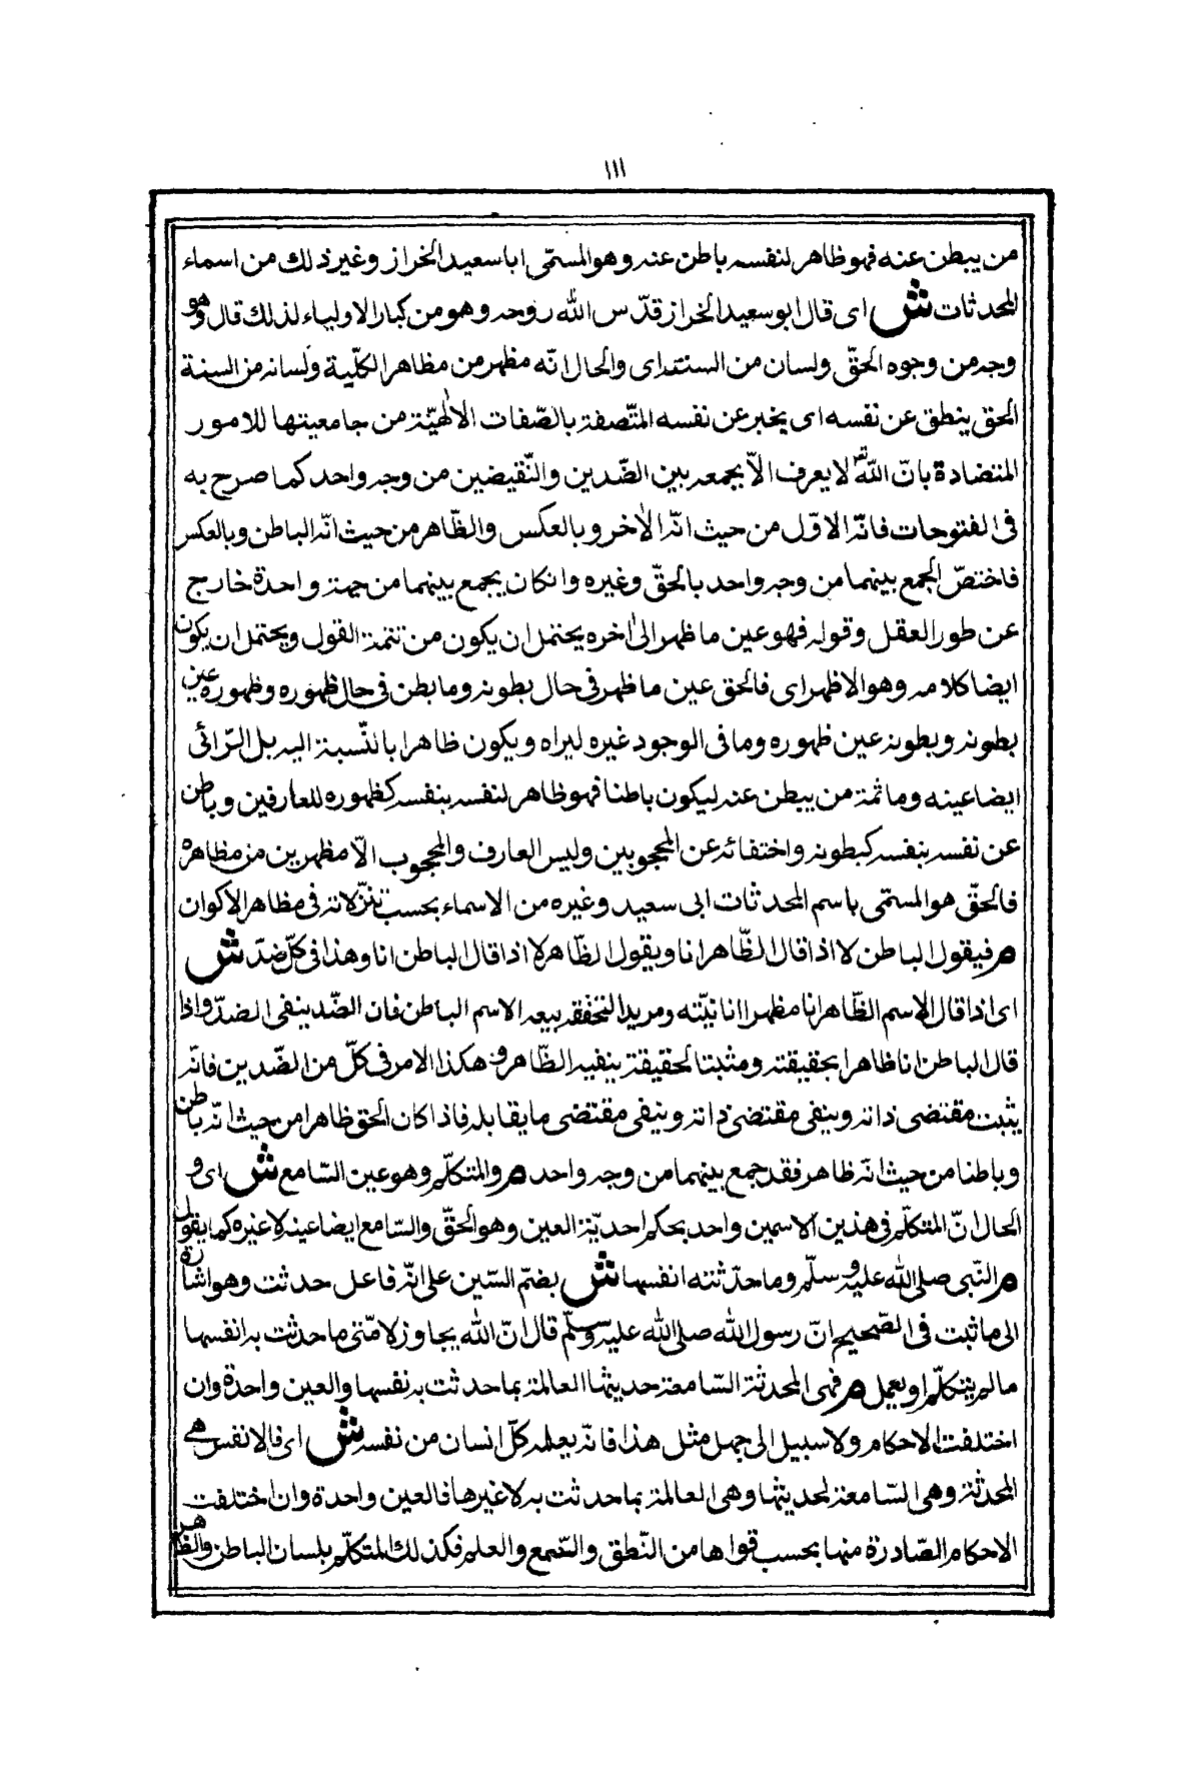 ١١١
من يبطن عنه فهو ظاهر لنفسه باطن عنه وهو المسمّى ابا سعيد الخراز وغير ذلك من اسماء
المحدثات ش اى قال ابو سعيد الخراز قدّس الله روحه وهو من كبار الاولياء لذلك قال وهو
وجه من وجوه الحقّ ولسان من السنته اى والحال انّه مظهر من مظاهر الكلّية ولسانه من السنة
الحق ينطق عن نفسه اى يخبر عن نفسه المتّصفة بالصّفات الالٰهيّة من جامعيتها للامور
المتضادة بانّ الله لا يعرف الاّ بجمعه بين الضّدين والنّقيضين من وجه واحد كما صرح به
فى الفتوحات فانّه الاوّل من حيث انّه الاٰخر وبالعكس والظّاهر من حيث انّه الباطن وبالعكس
فاختصّ الجمع بينهما من وجه واحد بالحقّ وغيره وانكان يجمع بينهما من جهة واحدة خارج
عن طور العقل وقوله فهو عين ما ظهر الى اٰخره يحتمل ان يكون من تتمة القول ويحتمل ان يكون
ايضا كلامه وهو الاظهر اى فالحق عين ما ظهر فى حال بطونه وما بطن فى حال ظهوره وظهوره عين
بطونه وبطونه عين ظهوره وما فى الوجود غيره ليراه ويكون ظاهرا بالنّسبة اليه بل الرّائى
ايضا عينه وما ثمة من يبطن عنه ليكون باطنا فهو ظاهر لنفسه بنفسه كظهوره للعارفين وباطن
عن نفسه بنفسه كبطونه واختفائه عن المحجوبين وليس العارف والمحجوب الاّ مظهرين من مظاهره
فالحقّ هو المسمّى باسم المحدثات ابى سعيد وغيره من الاسماء بحسب تنزّلاته فى مظاهر الاكوان
م فيقول الباطن لا اذا قال الظّاهر انا ويقول الظّاهر لا اذا قال الباطن انا وهذا فى كلّ ضدّ ش
اى اذا قال الاسم الظّاهر انا مظهرا انانيّته ومريدا لتحققه يبعه الاسم الباطن فان الضّد ينفى الضدّ واذا
قال الباطن انا ظاهرا بحقيقته ومثبتا لحقيقة ينفيه الظّاهر وهكذا الامر فى كلّ من الضّدين فانّه
يثبت مقتضى ذاته وينفى مقتضى ذاته وينفى مقتضى ما يقابله فاذا كان الحق ظاهرا من حيث انّه باطن
وباطنا من حيث انّه ظاهر فقد جمع بينهما من وجه واحد م والمتكلّم وهو عين السّامع ش اى و
الحال انّ المتكلّم فى هذين الاسمين واحد بحكم احديّة العين وهو الحقّ والسّامع ايضا عينه لا غيره كما يقول
م النّبى صلى الله عليه وسلّم وما حدّثته انفسها ش بضمّ السّين على انّه فاعل حدثت وهو اشارة
الى ما ثبت فى الصّحيح انّ رسول الله صلى الله عليه وسلّم قال انّ الله يجاوز لامّتى ما حدثت به انفسها
ما لم يتكلّم او يعمل م فهى المحدثة السّامعة حديثها العالمة بما حدثت به نفسها والعين واحدة وان
اختلفت الاحكام ولا سبيل الى جهل مثل هذا فانّه يعلمه كلّ انسان من نفسه ش اى فالانفس هى
المحدثة وهى السّامعة لحديثها وهى العالمة بما حدثت به لا غيرها فالعين واحدة وان اختلفت
الاحكام الصّادرة منها بحسب قواها من النّطق والسّمع والعلم فكذلك المتكلّم بلسان الباطن والظّاهر